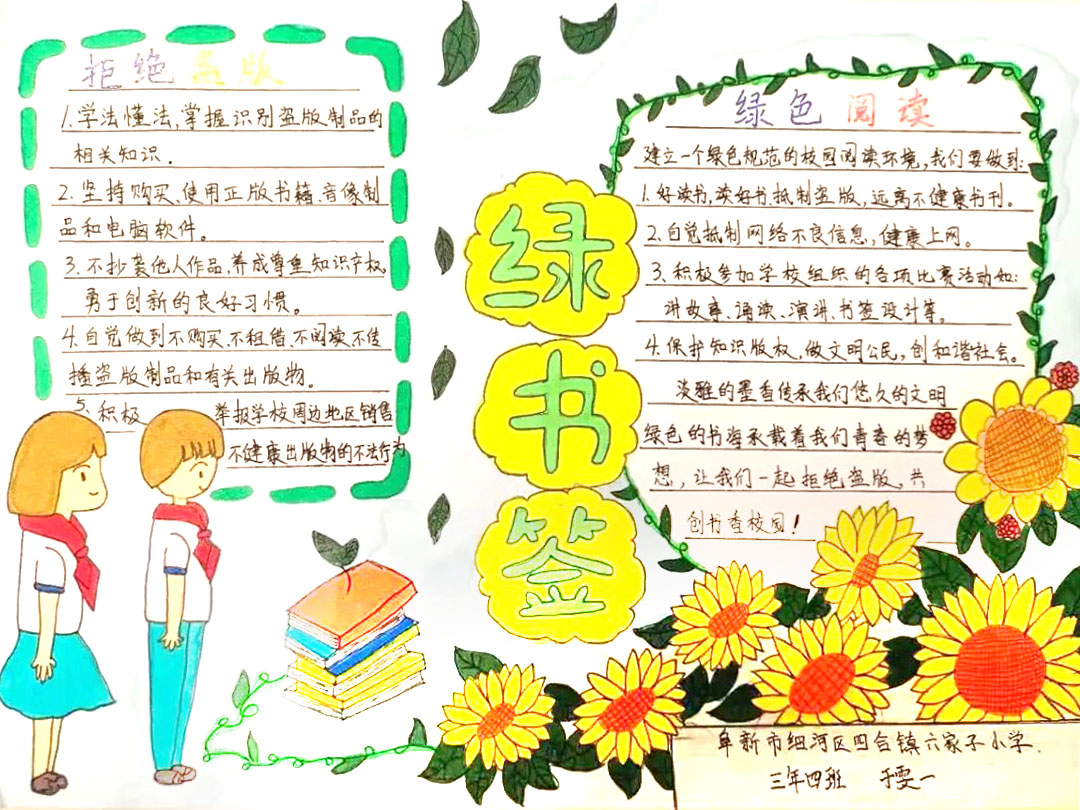 拒绝盗版
1.学法懂法,掌握识别盗版制品的
相关知识.
2.坚持购买、使用正版书籍、音像制
品和电脑软件。
3.不抄袭他人作品,养成尊重知识产权,
勇于创新的良好习惯。
4.自觉做到不购买、不租借、不阅读、不传
播盗版制品和有关出版物。
5、积极 举报学校周边地区销售
不健康出版物的不法行为
绿
书
签
绿色阅读
建立一个绿色规范的校园阅读环境,我们要做到:
1.好读书,读好书,抵制盗版,远离不健康书刊。
2.自觉抵制网络不良信息,健康上网。
3.积极参加学校组织的各项比赛活动如:
讲故事、诵读、演讲、书签设计等。
4.保护知识版权,做文明公民,创和谐社会。
淡雅的墨香传承我们悠久的文明
绿色的书海承载着我们青春的梦
想,让我们一起拒绝盗版,共
创书香校园!
阜新市细河区四合镇六家子小学.
三年四班 于雯一